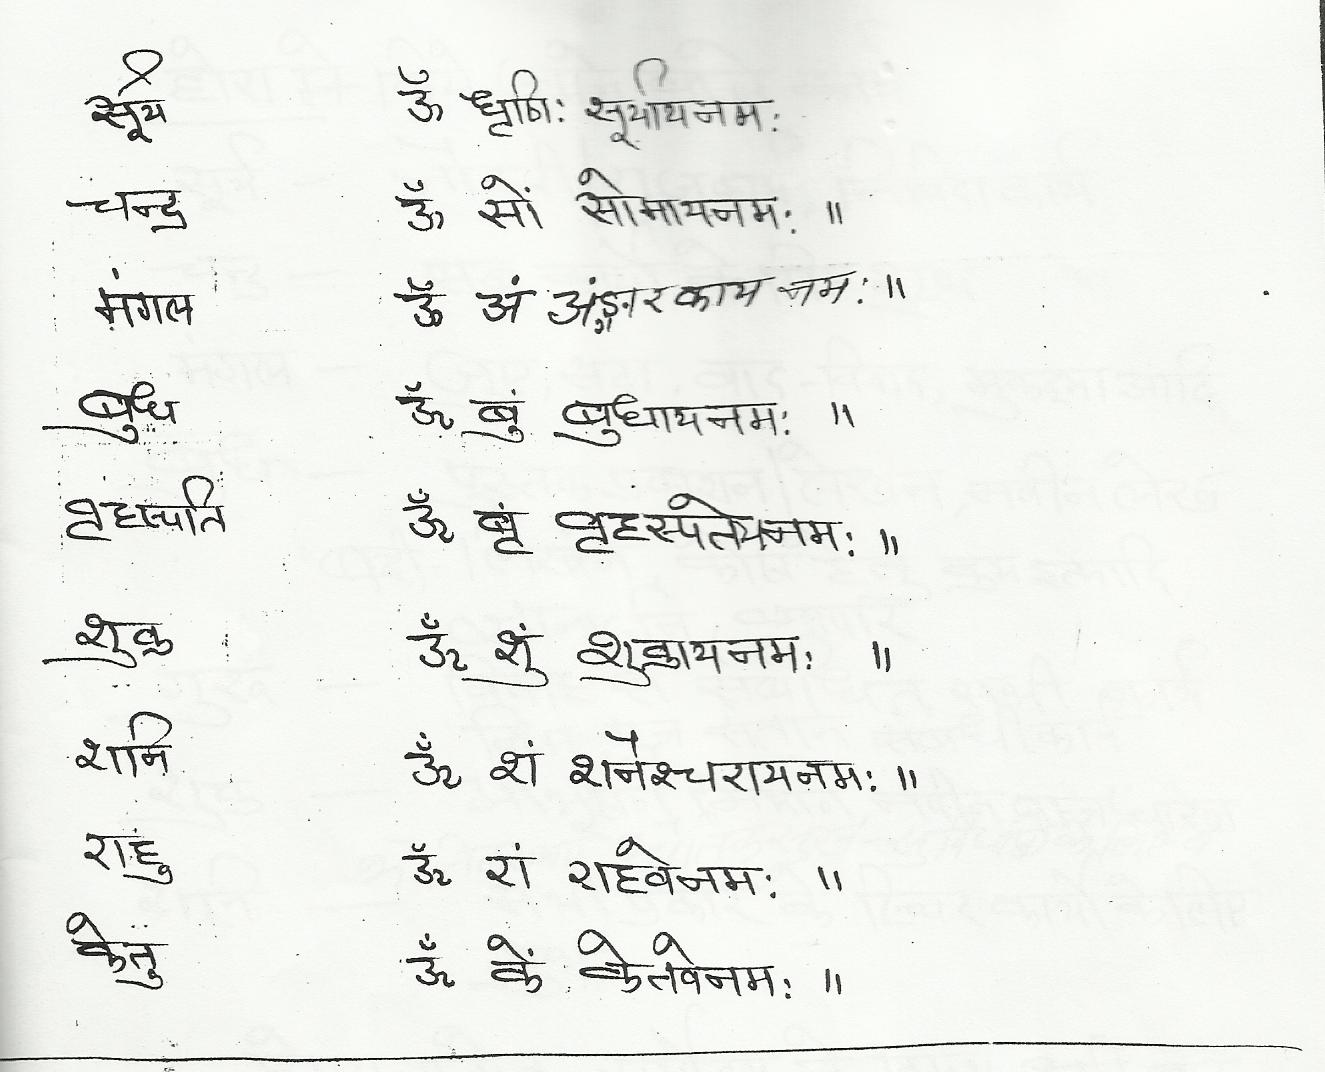 सूर्य ॐ घृणिः सूर्यायनमः
चन्द्र ॐ सों सोमायनमः ॥
मंगल ॐ अं अंङ्गारकाय नमः ॥
बुध ॐ बुं बुधायनमः ॥
बृहस्पति ॐ बृं बृहस्पतेयनमः ॥
शुक्र ॐ शुं शुक्रायनमः ॥
शनि ॐ शं शनैश्चरायनमः ॥
राहु ॐ रां राहवेनमः ॥
केतु ॐ कें केतवेनमः ॥